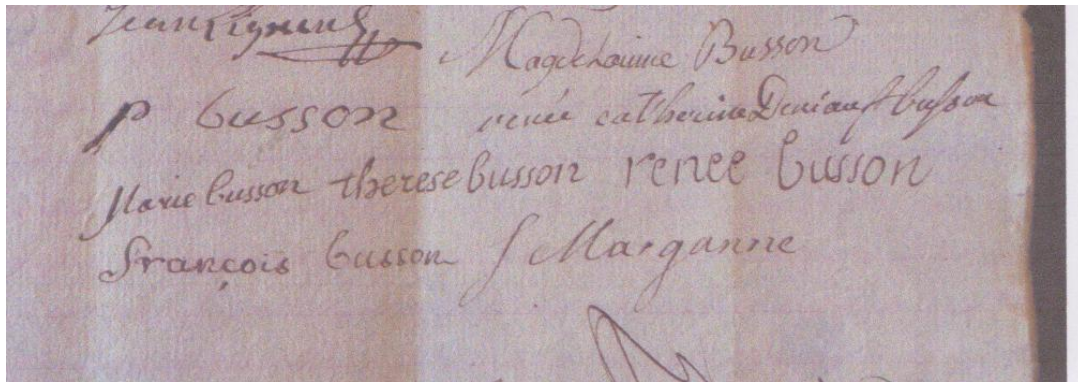 Jean
Magdelainne Busson
p busson renée catherine Deniau busson
Marie busson therese busson renee busson
françois busson J Marganne